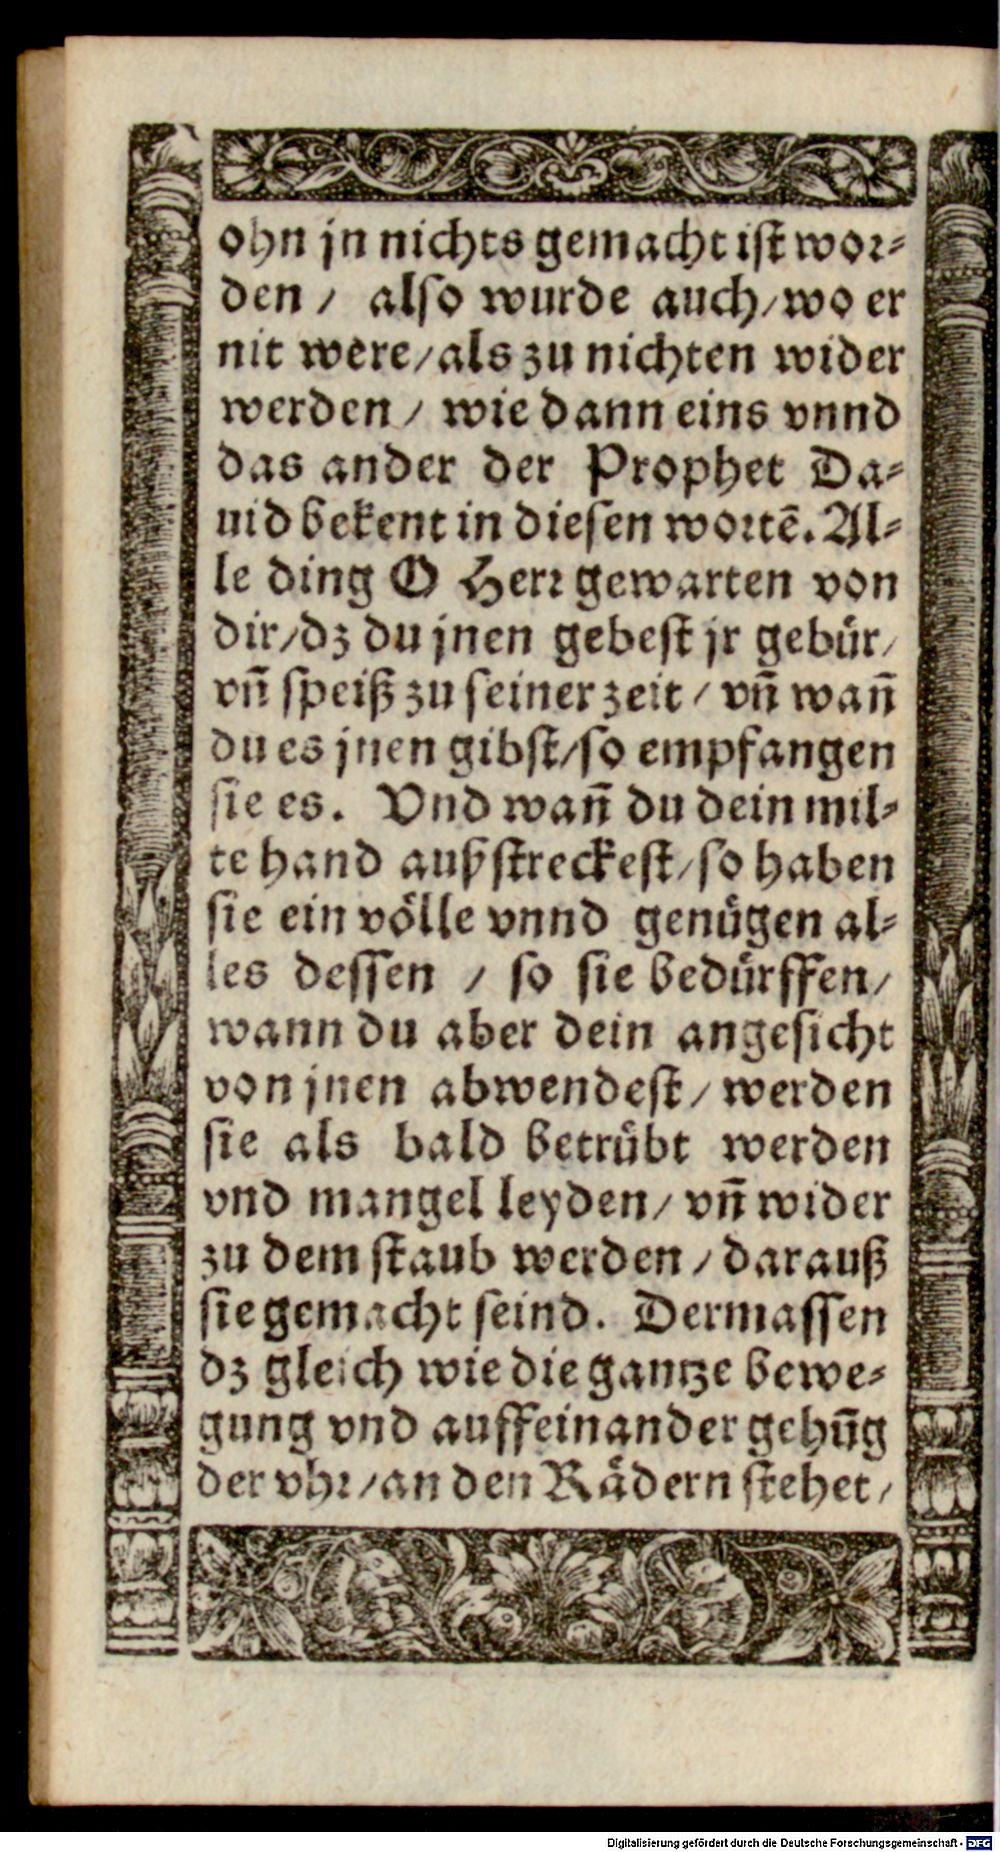 ohn jn nichts gemacht ist wor⸗
den / also wurde auch/wo er
nit were/als zu nichten wider
werden / wie dann eins vnnd
das ander der Prophet Da⸗
uid bekent in diesen wortẽ. Al⸗
le ding O Herr gewarten von
dir/dz du jnen gebest jr gebür/
vñ speiß zu seiner zeit / vñ wañ
du es jnen gibst/so empfangen
sie es. Vnd wañ du dein mil⸗
te hand außstreckest/so haben
sie ein völle vnnd genügen al⸗
les dessen / so sie bedürffen/
wann du aber dein angesicht
von jnen abwendest / werden
sie als bald betrübt werden
vnd mangel leyden/ vñ wider
zu dem staub werden / darauß
sie gemacht seind. Dermassen
dz gleich wie die gantze bewe⸗
gung vnd auffeinander gehũg
der vhr/an den Rädern stehet/
Digitalisierung gefördert durch die Deutsche Forschungsgemeinschaft - DFG